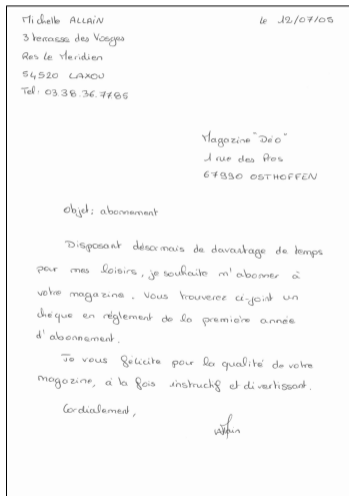 Michelle ALLAIN
le 12/07/05
3 terrasse des Vosges
Res le Meridien
54520 LAXOU
Tel: 03.38.36.7785
Magazine "Déo"
1 rue des Pos
67990 OSTHOFFEN
objet: abonnement
Disposant désormais de davantage de temps
pour mes loisirs, je souhaite m'abonner à
votre magazine. Vous trouverez ci-joint un
chèque en règlement de la première année
d'abonnement.
Je vous félicite pour la qualité de votre
magazine, à la fois instructif et divertissant.
Cordialement,